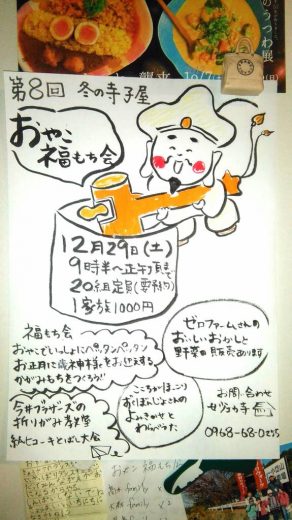 のうつわ展
第8回 冬の寺子屋
おやこ
福もち会
12月29日(土)
9時半〜正午頃まで
20組定員(要予約)
1家族1000円
福もち会
おやこでいっしょにペッタンペッタン
お正月に歳神様をお迎えする
かがみもちをつくろう!!
ゼロファームさんの
おいしいおかしと
野菜の販売あります
今井ブラザーズの
折りがみ教室
紙ヒコーキとばし大会
こころやほこり
よみきかせと
わらべうた
お問い合わせ
0968-68-0255
おやこ 福もち
family
family × 2